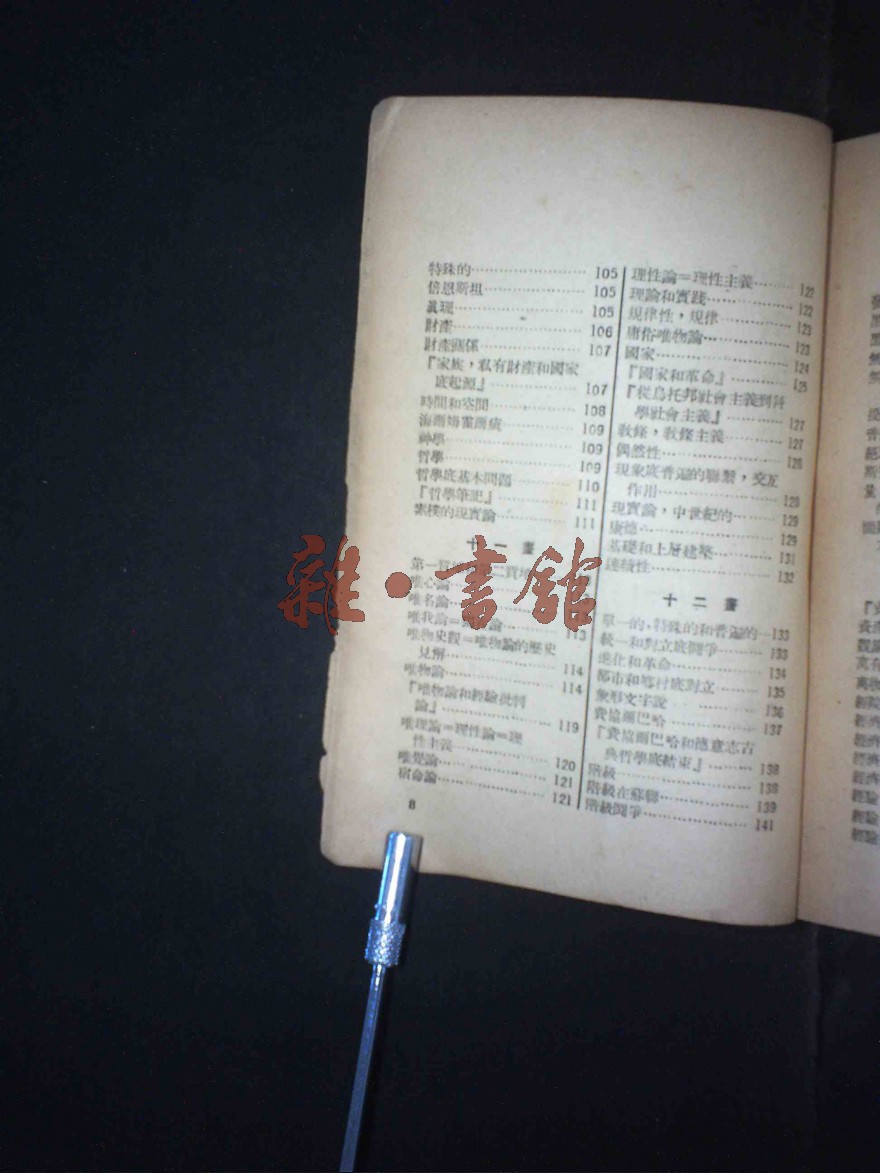 特殊的 105
倍恩斯坦 105
眞理 105
財產 106
財產關係 107
『家族，私有財產和國家
底起源』 107
時間和空間 108
109
神學 109
哲學 109
哲學底基本問題 110
『哲學筆記』 111
素樸的現實論 111
十一畫
第一
唯心論
唯名論
唯我論＝ 論 113
唯物史觀＝唯物論的歷史
見解 114
唯物論 114
『唯物論和經驗批判
論』 119
唯理論＝理性論＝理
性主義 120
唯覺論 121
宿命論 121
8
理性論＝理性主義 122
理論和實踐 122
規律性，規律 123
庸俗唯物論 123
國家 124
『國家和革命』 125
『從烏托邦社會主義到科
學社會主義』 127
敎條，敎條主義 127
偶然性 128
現象底普遍的聯繫，交互
作用 128
現實論，中世紀的 129
康德 129
基礎和上層建築 131
連續性 132
十二畫
單一的，特殊的和普遍的 133
統一和對立底鬪爭 133
進化和革命 134
都市和鄉村底對立 135
象形文字說 136
費爾巴哈 137
『費爾巴哈和德意志古
典哲學底結束』 138
階級 138
階級在蘇聯 139
階級鬪爭 141
雜·書館